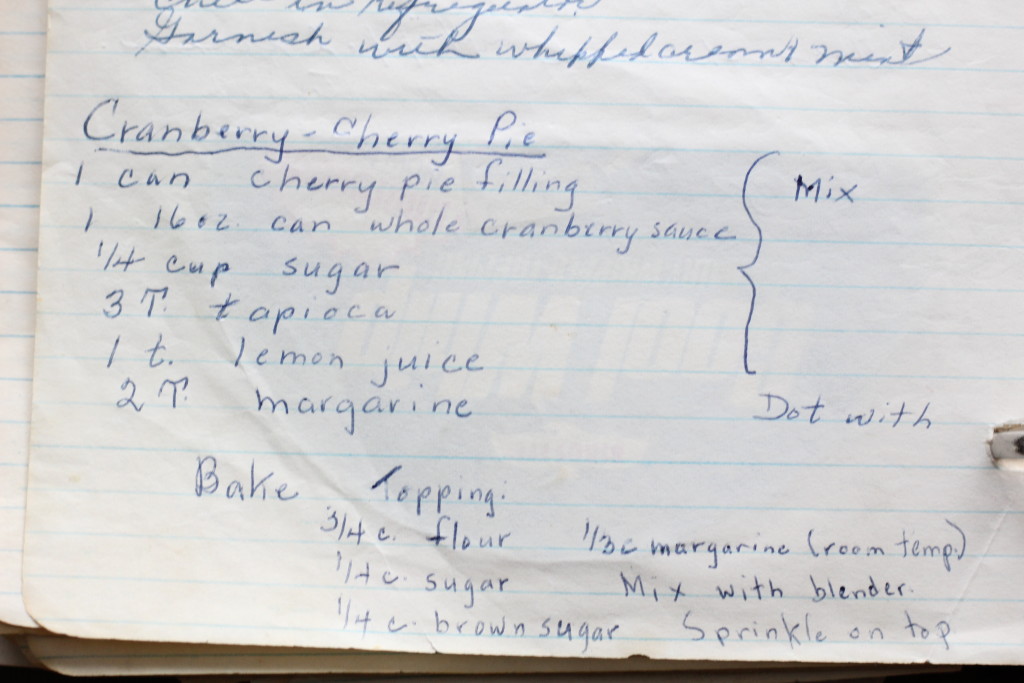 Chill in refrigerator.
Garnish with whipped cream & mint
Cranberry-Cherry Pie
1 can cherry pie filling
1 16 oz. can whole cranberry sauce
Mix
1/4 cup sugar
3 T. tapioca
1 t. lemon juice
2 T. margarine
Dot with
Bake Topping:
3/4 c. flour 1/3 c margarine (room temp.)
1/4 c. sugar Mix with blender.
1/4 c. brown sugar Sprinkle on top